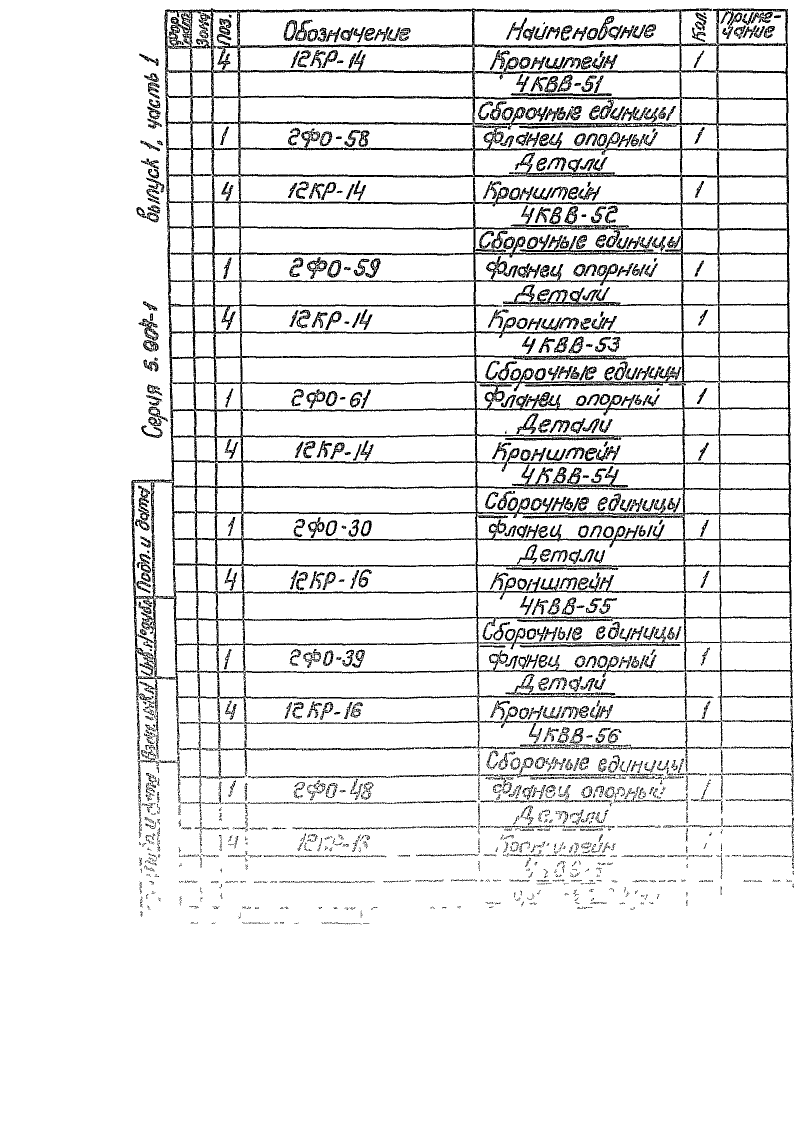 Серия 5.904-1 Выпуск 1, часть 1
Поз. Обозначение Наименование Кол. Примечание
4 12КР-14 Кронштейн 1
4КВВ-51
Сборочные единицы
1 2ФО-58 Фланец опорный 1
Детали
4 12КР-14 Кронштейн 1
4КВВ-52
Сборочные единицы
1 2ФО-59 Фланец опорный 1
Детали
4 12КР-14 Кронштейн 1
4КВВ-53
Сборочные единицы
1 2ФО-61 Фланец опорный 1
Детали
4 12КР-14 Кронштейн 1
4КВВ-54
Сборочные единицы
1 2ФО-30 Фланец опорный 1
Детали
4 12КР-16 Кронштейн 1
4КВВ-55
Сборочные единицы
1 2ФО-39 Фланец опорный 1
Детали
4 12КР-16 Кронштейн 1
4КВВ-56
Сборочные единицы
1 2ФО-48 Фланец опорный 1
Детали
4 Кронштейн 1
Подп. и дата
Взам. инв. N